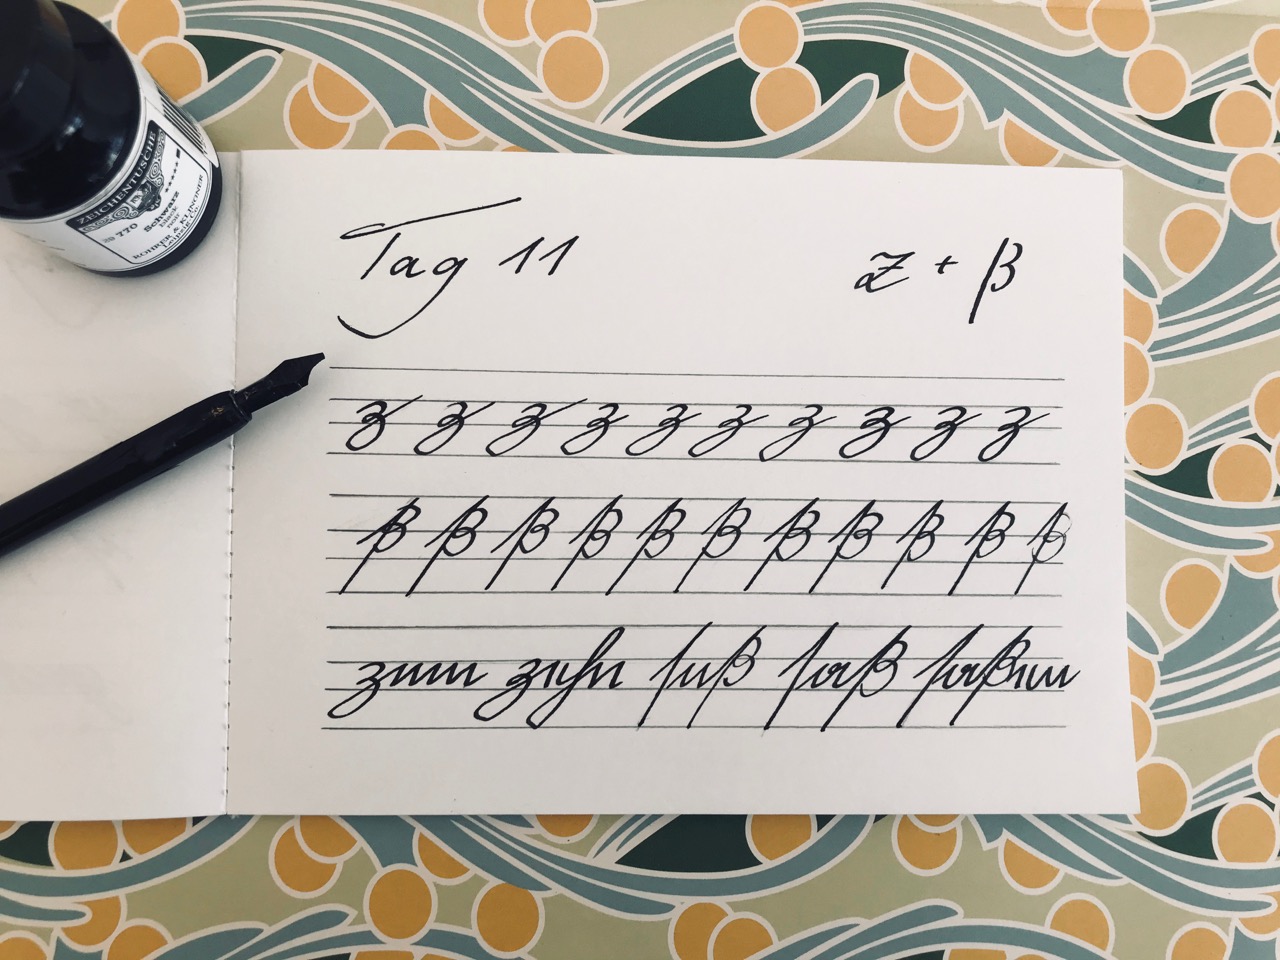 ZEICHENTUSCHE
770
Schwarz
black
noir
ROHRER & KLINGNER
Leipzig
Tag 11
Z + ß
z z z z z z z z z z
ß ß ß ß ß ß ß ß ß ß ß
zum zehn ſaß ſaßen